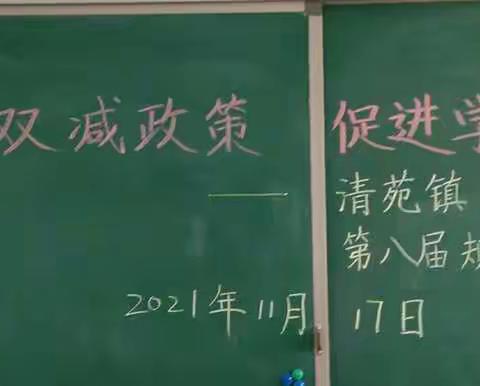 双减政策 促进学
——清苑镇
第八届规
2021年11月17日